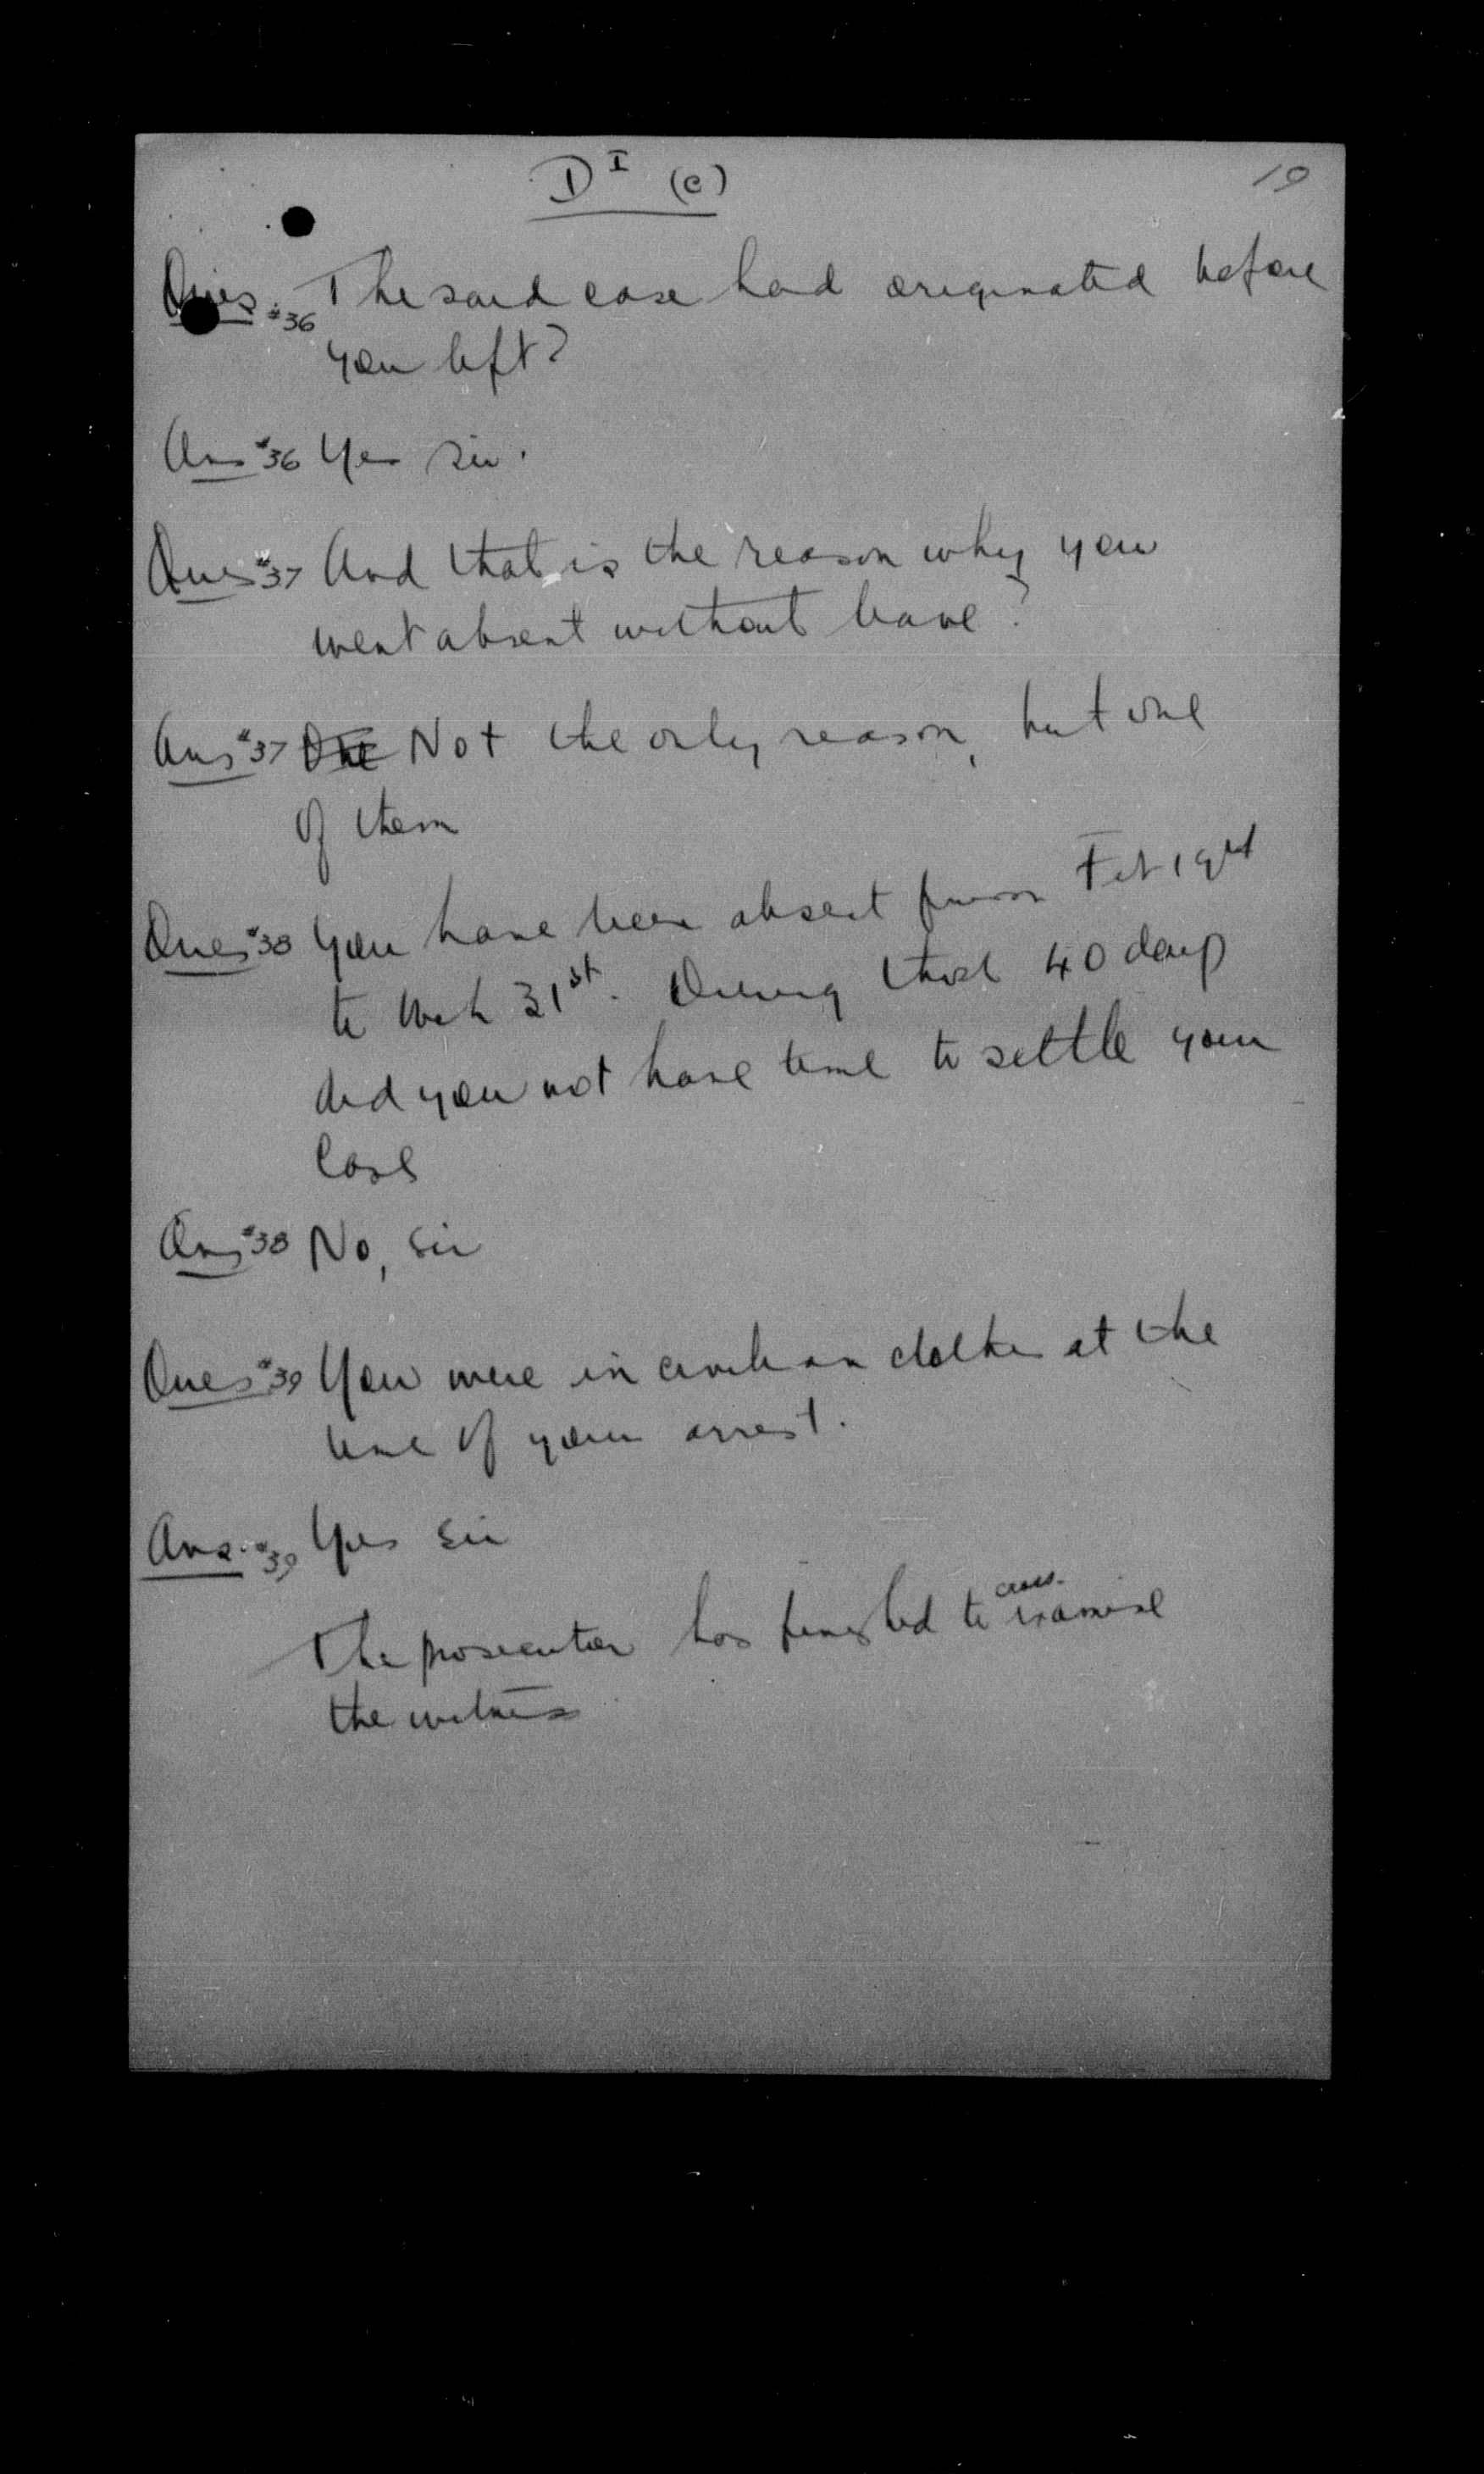 D I (c)
19
Ques. #36 The said case had originated before
you left?
Ans #36 Yes sir.
Ques #37 And that is the reason why you
went absent without leave?
Ans #37 One Not the only reason, but one
of them
Ques #38 You have been absent from Feb 19th
to Mch 31st. During those 40 days
did you not have time to settle your
case
Ans #38 No, sir
Ques #39 You were in civilian clothes at the
time of your arrest.
Ans. #39 Yes sir
The prosecutor has finished to cross-examine
the witness